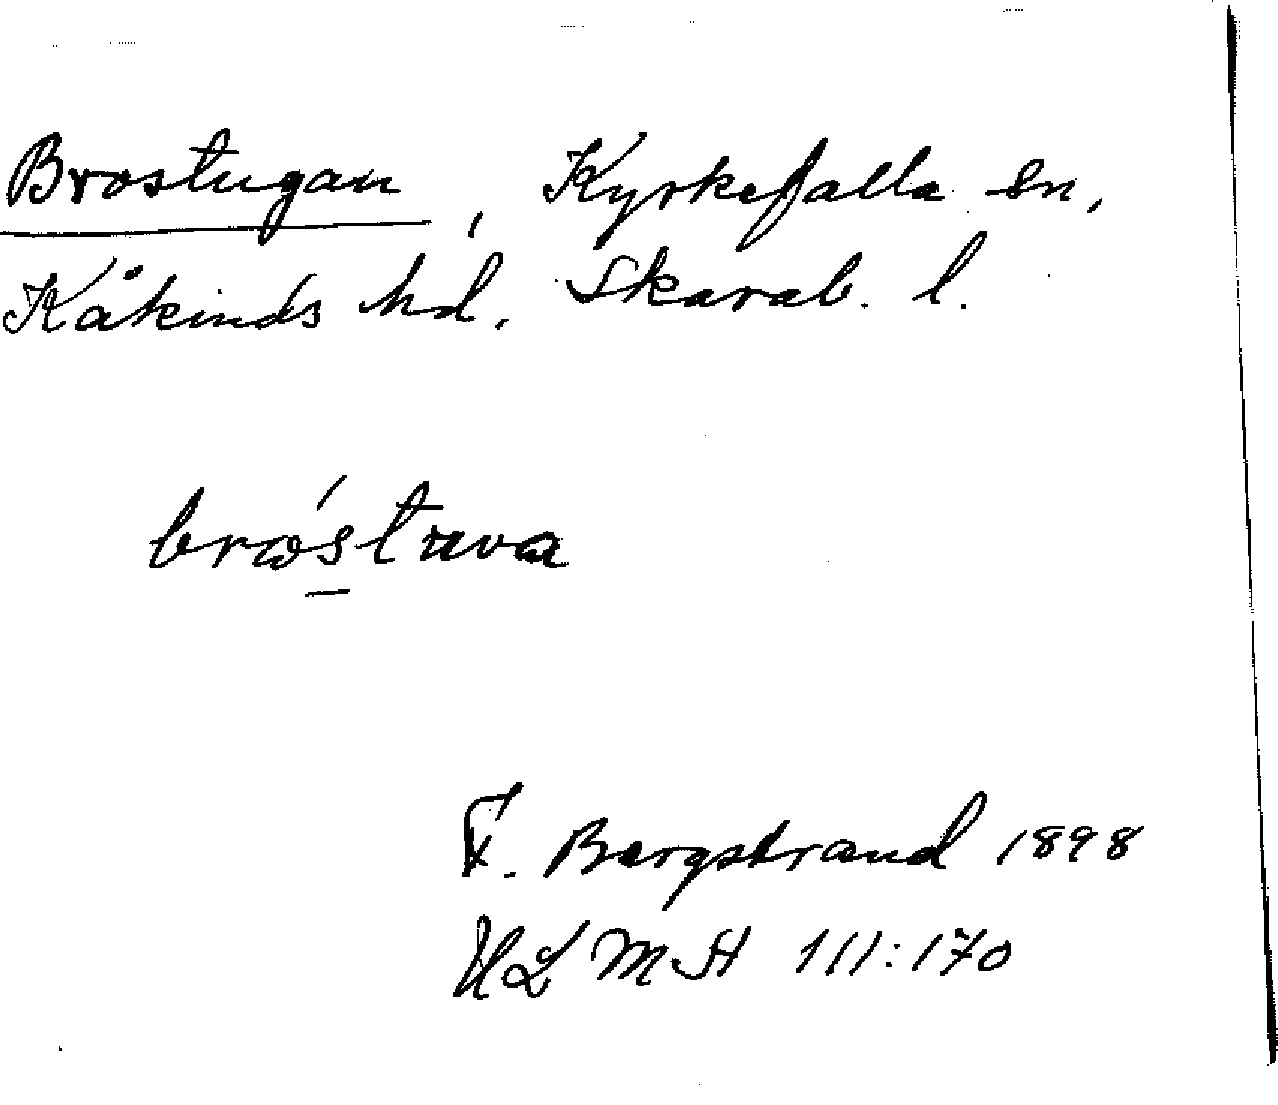 Brostugan, Kyrkefalla sn,
Kåkinds hd. Skarab. l.
bröstuva
F. Bergstrand 1898
ULMA 111:170